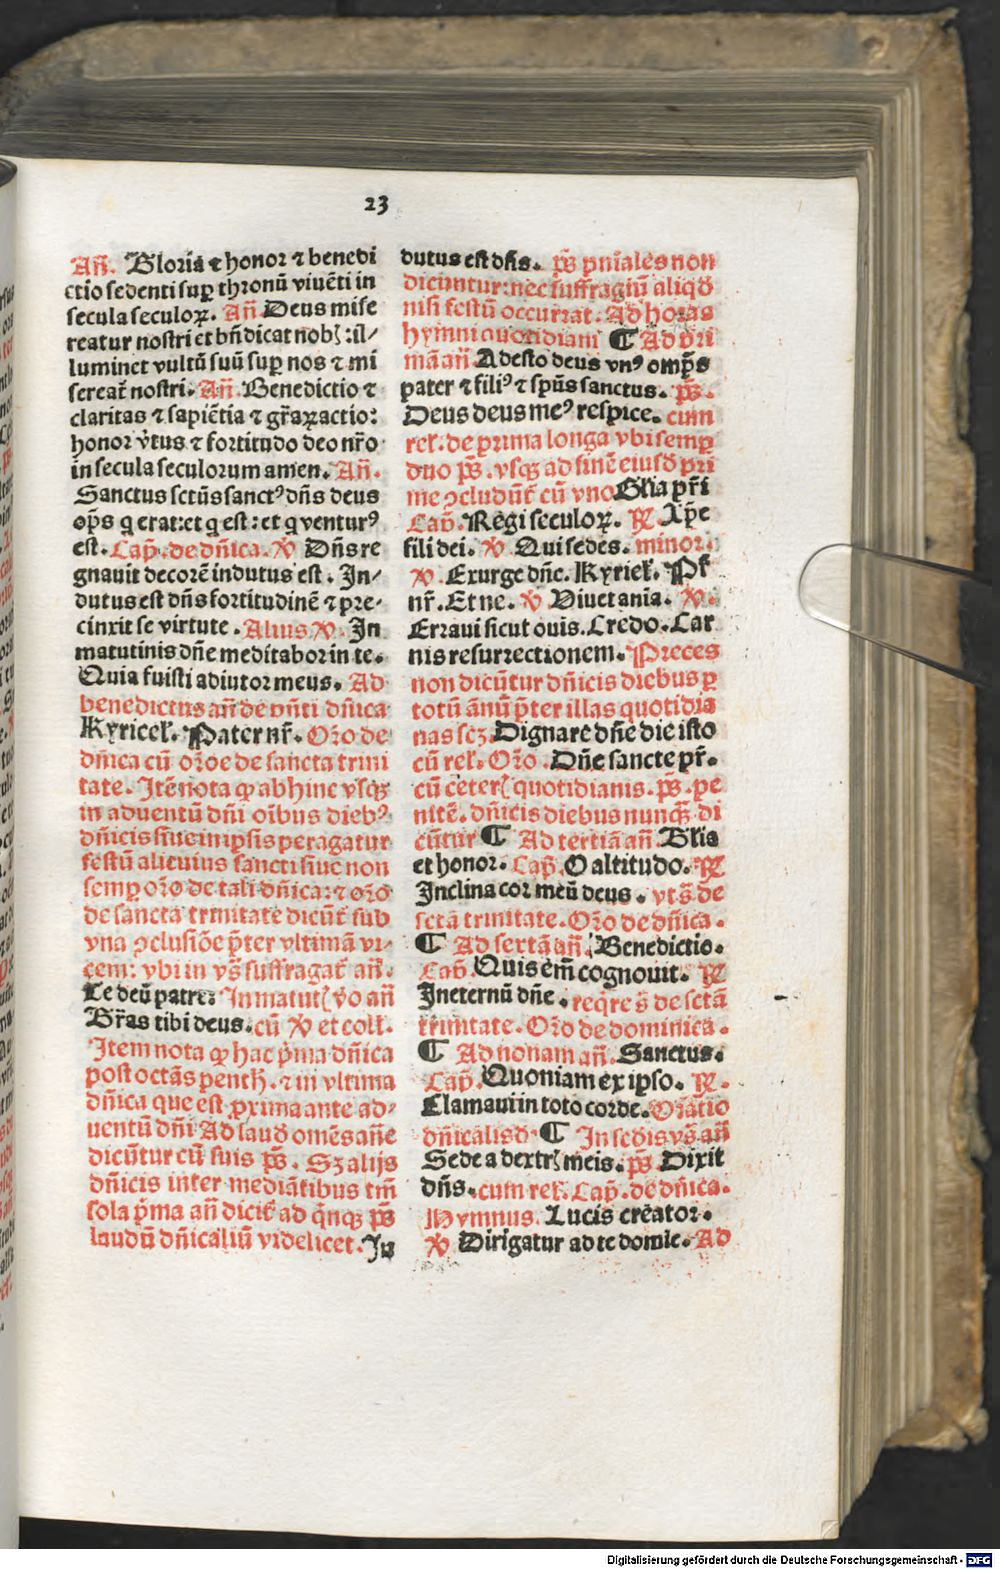 23
Añ. Gloria ⁊ honor ⁊ benedi
ctio sedenti suꝑ thronū viuēti in
secula seculoꝝ. Añ Deus mise
reatur nostri et bn̄dicat nob̉ :il⸗
luminet vultū suū suꝑ nos ⁊ mi
sereat̄ nostri. Añ. Benedictio ⁊
claritas ⁊ sapiētia ⁊ gr̄aꝝactio:
honor v̄tus ⁊ fortitudo deo nr̄o
in secula seculorum amen. Añ.
Sanctus sctūs sanctꝰ dn̄s deus
op̄s q erat:et q est : et q venturꝰ
est. Cap̄. de dn̄ica. ꝟ Dn̄s re
gnauit decorē indutus est . In⸗
dutus est dn̄s fortitudinē ⁊ pre⸗
cinxit se virtute . Alius ꝟ. In
matutinis dn̄e meditabor in te.
Quia fuisti adiutor meus. Ad
benedictus añ de vn̄ti dn̄ica
Kyrieel. Pater nr̄. Or̄o de
dn̄ica cū or̄oe de sancta trini
tate. Itē nota ꝙ abhinc vsqꝫ
in aduentū dn̄i oībus diebꝰ
dn̄icis siue in ip̄sis peragatur
festū alicuius sancti siue non
semꝑ or̄o de tali dn̄ica: ⁊ or̄o
de sancta trinitate dicūt̄ sub
vna ꝯclusiōe p̄ter vltimā vi⸗
cem: vbi in vs̄ suffragat̄ añ.
Te deū patrē: In matut̉ v̄o añ
Gr̄as tibi deus. cū ꝟ et coll̄.
Item nota ꝙ hac p̄ma dn̄ica
post octās penth̄. ⁊ in vltima
dn̄ica que est ꝓxima ante ad⸗
uentū dn̄i Ad laud̄ omēs añe
dicūtur cū suis ps̄. Sꝫ alijs
dn̄icis inter mediātibus tm̄
sola p̄ma añ dicit̄ ad q̄nqꝫ ps̄
laudū dn̄icaliū videlicet. In
dutus est dn̄s. ps̄ pn̄iales non
dicuntur: nec suffragiū aliqd̄
nisi festū occurrat. Ad horas
hymni quotidiani ¶ Ad pri
mā añ Adesto deus vnꝰ omp̄s
pater ⁊ filiꝰ ⁊ sp̄us sanctus. ps̄.
Deus deus meꝰ respice. cum
rel. de prima longa vbi semꝑ
duo ps̄. vsqꝫ ad finē eiusd̄ pri
me ꝯcludūt̄ cū vno Glīa pr̄i
Cap̄. Regi seculoꝝ. ℞. Xp̄e
fili dei. ꝟ. Qui sedes. minor.
ꝟ. Exurge dn̄e. Kyriel. Pr̄
nr̄. Et ne. ꝟ. Viuet ania. ꝟ.
Erraui sicut ouis. Credo. Car
nis resurrectionem. Preces
non dicūtur dn̄icis diebus ꝑ
totū ānū p̄ter illas quotidia
nas scꝫ. Dignare dn̄e die isto
cū rel. Or̄o . Dn̄e sancte pr̄.
cū ceter̉ quotidianis. ps̄. pe
nitē. dn̄icis diebus nunqꝫ di
cūtur ¶ Ad tertiā añ. Glīa
et honor. Cap̄. O altitudo. ℞
Inclina cor meū deus . vt s̄ de
sctā trinitate. Or̄o de dn̄ica .
¶ Ad sextā añ. Benedictio.
Cap̄. Quis em̄ cognouit. ℞
In eternū dn̄e . reqre s̄ de sctā
trinitate. Or̄o de dominica .
¶ Ad nonam añ. Sanctus.
Cap̄. Quoniam ex ipso. ℞.
Clamaui in toto corde. Oratio
dn̄icalis d̄. ¶ In scd̄is vs̄ añ
Sede a dextr̉ meis. ps̄ Dixit
dn̄s. cum rel. Cap̄. de dn̄ica.
Hymnus. Lucis creator.
ꝟ Dirigatur ad te domīe. Ad
Digitalisierung gefördert durch die Deutsche Forschungsgemeinschaft - DFG